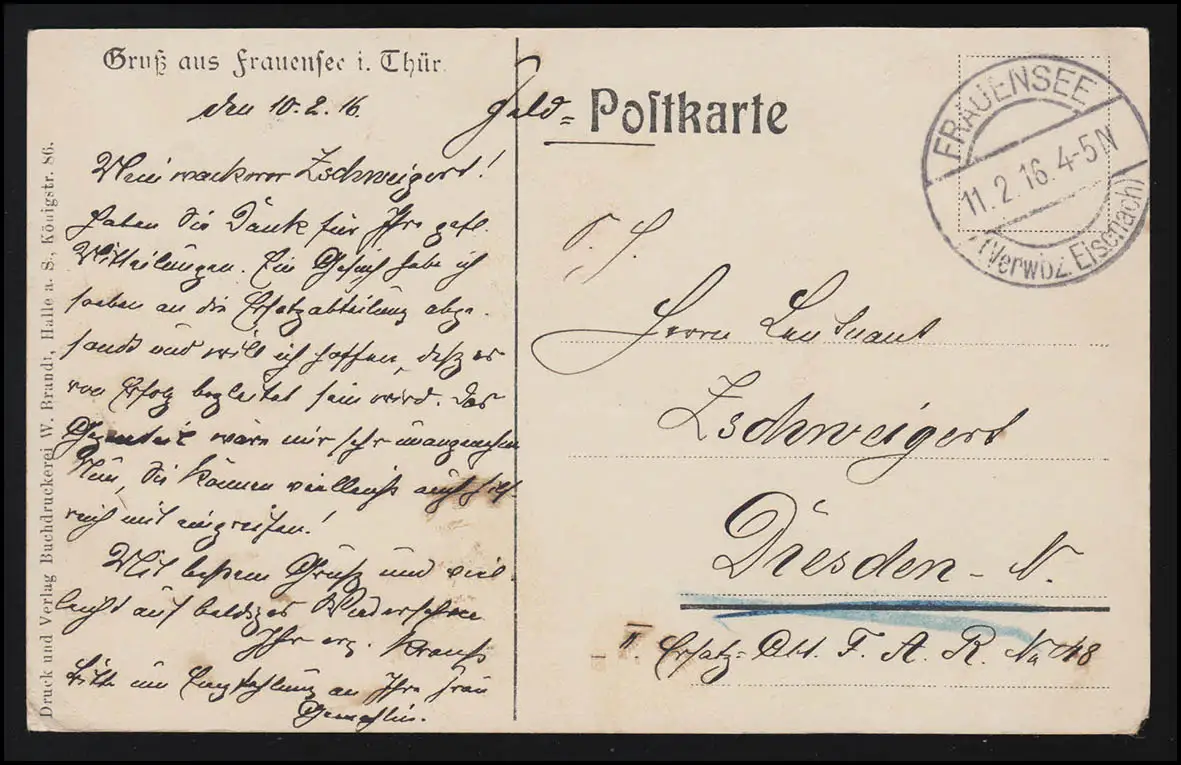 Gruß aus Frauensee i. Thür.
den 10.2.16.
Mein wackerer Zschweigert!
Haben Sie Dank für Ihre gefl.
Mitteilungen. Ein Gesuch habe ich
soeben an die Ersatzabteilung abge-
sandt und will ich hoffen, daß es
von Erfolg begleitet sein wird. Das
Gegenteil wäre mir sehr unangenehm
Nun, Sie können vielleicht auch hilf-
reich mit eingreifen!
Mit bestem Gruß und viel-
leicht auf baldiges Wiedersehen
Ihr erg. Krauß
Bitte um Empfehlung an Ihre Frau
Gemahlin.
Feld= Postkarte
S. H.
Herrn Leutnant
Zschweigert
Dresden - N.
II. Ersatz-Abt. F. A. R. No 48
FRAUENSEE
11.2.16.4-5N
(Verwbz. Eisenach)
Druck und Verlag Buchdruckerei W. Brandt, Halle a. S., Königstr. 86.